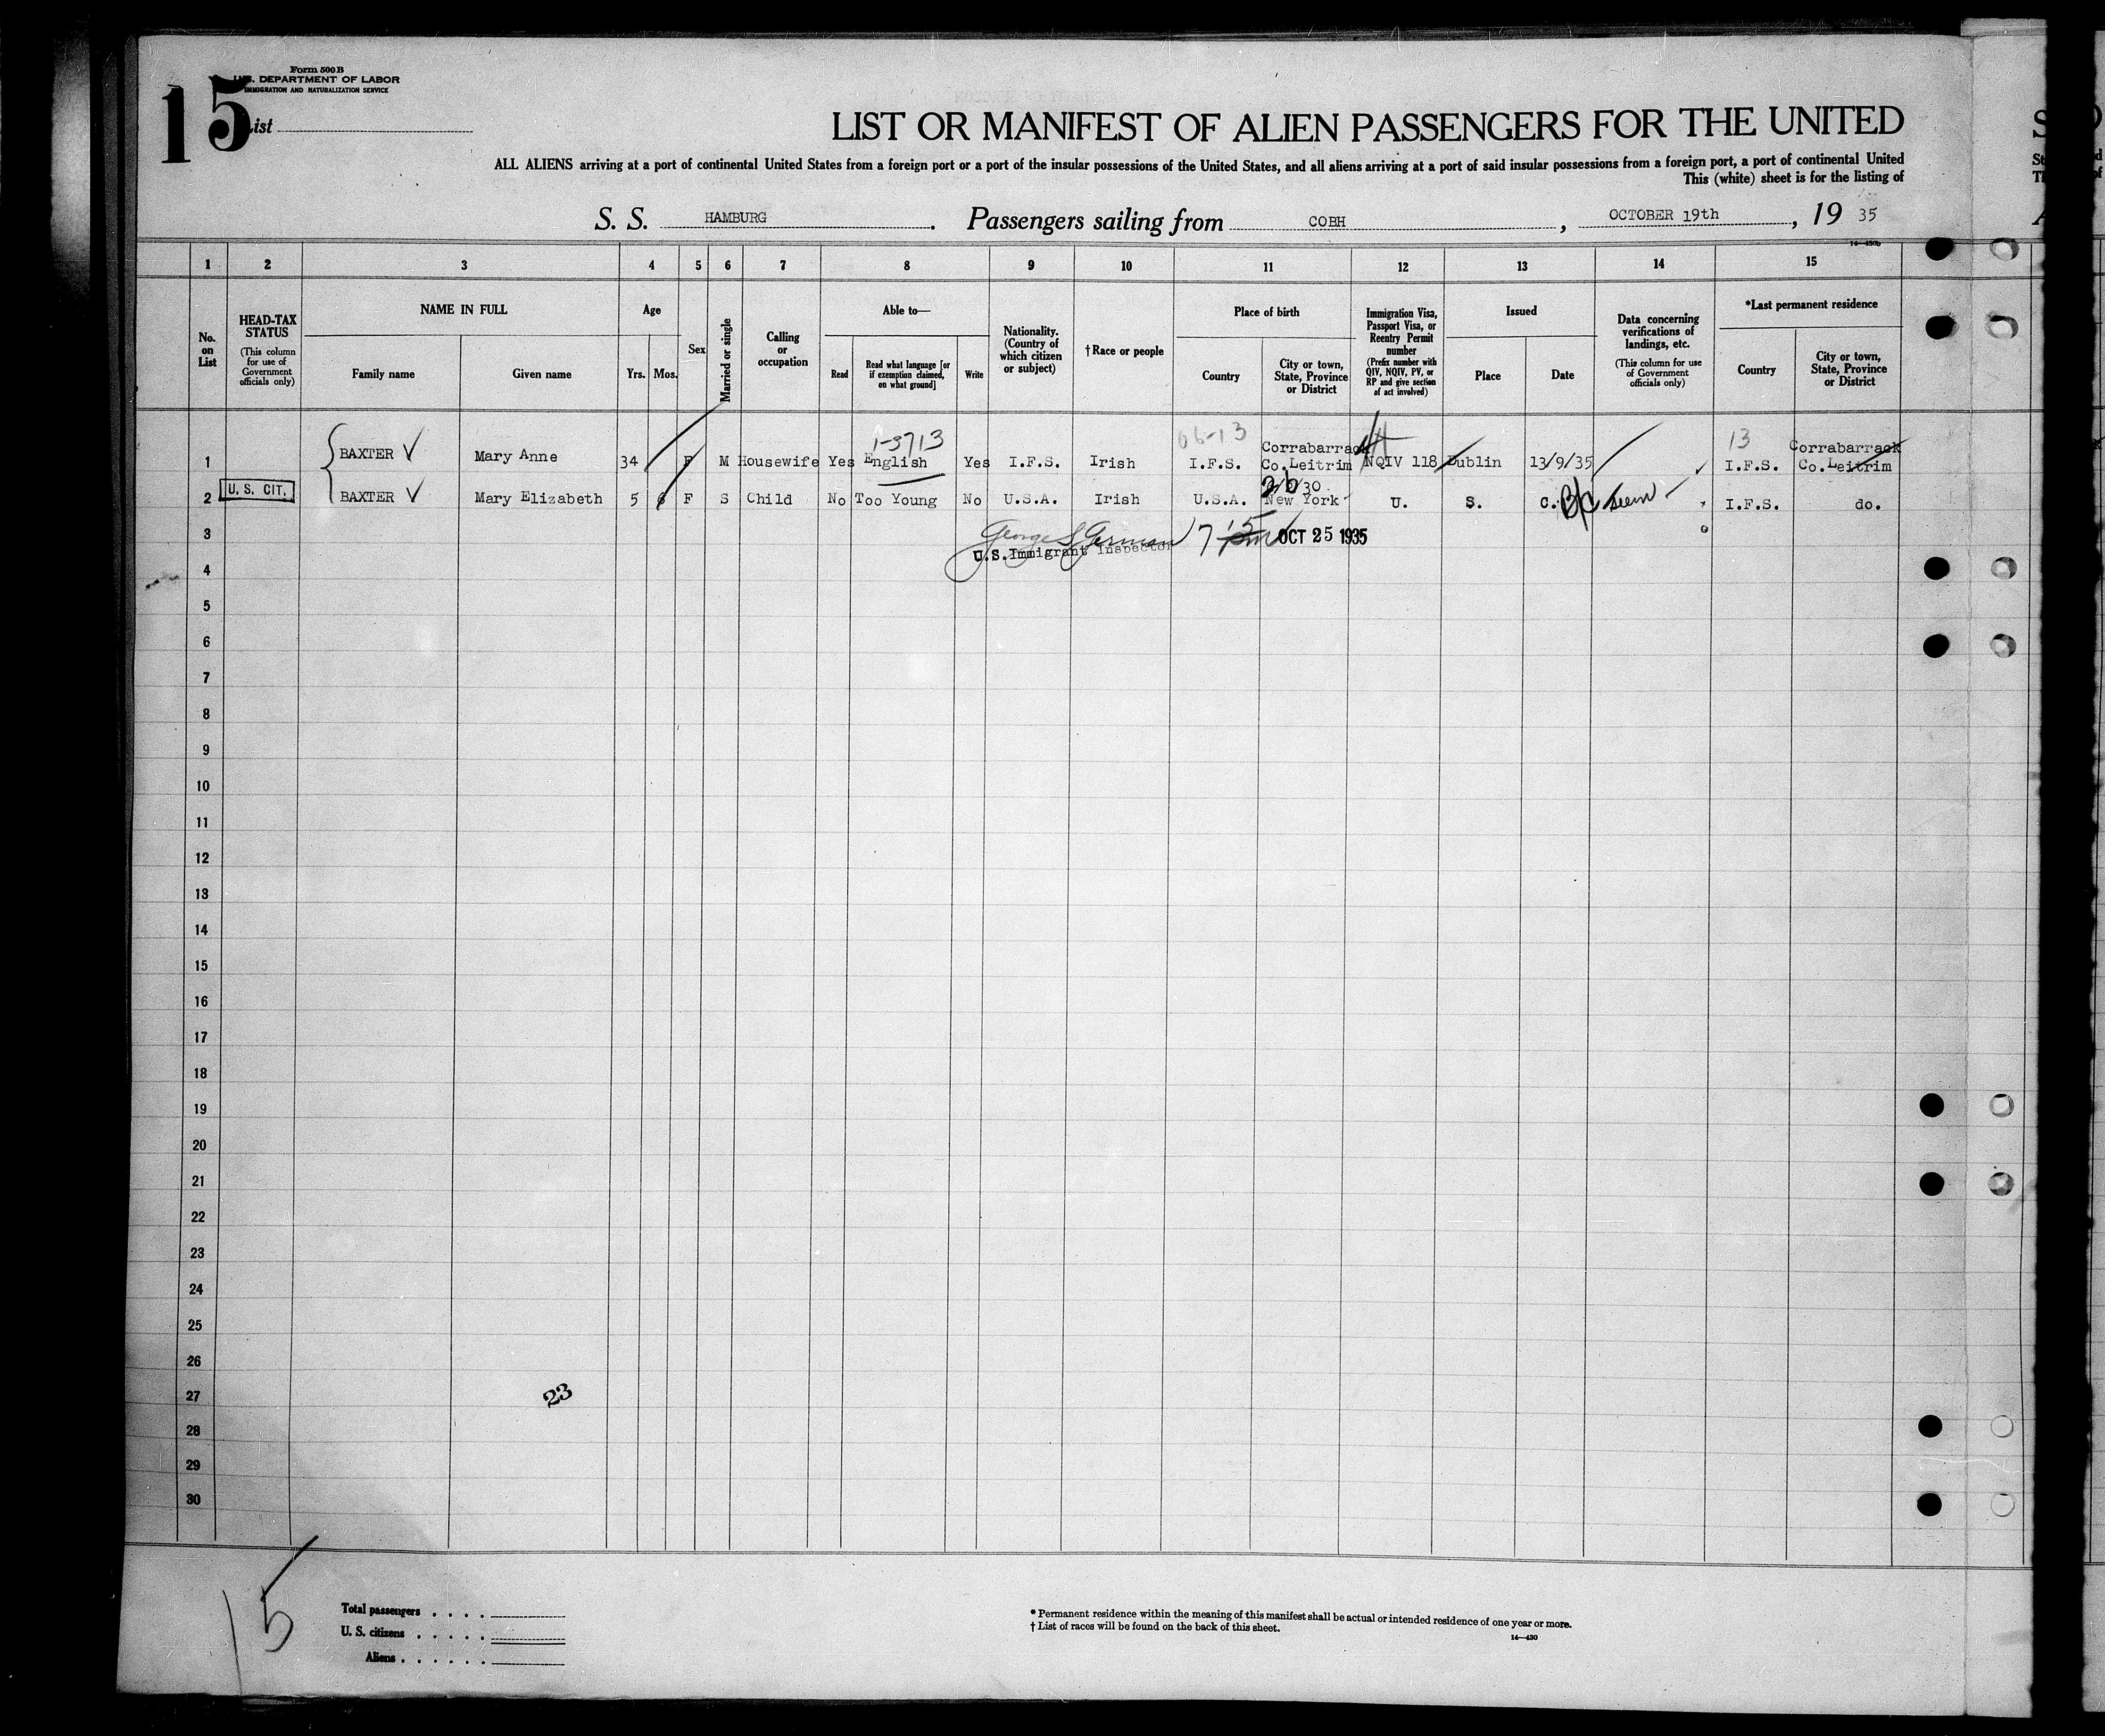 Form 500 B
U.S. DEPARTMENT OF LABOR
IMMIGRATION AND NATURALIZATION SERVICE
15
List
LIST OR MANIFEST OF ALIEN PASSENGERS FOR THE UNITED
ALL ALIENS arriving at a port of continental United States from a foreign port or a port of the insular possessions of the United States, and all aliens arriving at a port of said insular possessions from a foreign port, a port of continental United
This (white) sheet is for the listing of
S. S. HAMBURG. Passengers sailing from COBH, OCTOBER 19th, 19 35
1 2 3 4 5 6 7 8 9 10 11 12 13 14 15
No. on List
HEAD-TAX STATUS
(This column for use of Government officials only)
NAME IN FULL
Family name
Given name
Age
Yrs.
Mos.
Sex
Married or single
Calling or occupation
Able to—
Read
Read what language [or if exemption claimed, on what ground]
Write
Nationality. (Country of which citizen or subject)
†Race or people
Place of birth
Country
City or town, State, Province or District
Immigration Visa, Passport Visa, or Reentry Permit number
(Prefix number with QIV, NQIV, PV, or RP and give section of act involved)
Issued
Place
Date
Data concerning verifications of landings, etc.
(This column for use of Government officials only)
*Last permanent residence
Country
City or town, State, Province or District
1-3713
66-13
13
1 BAXTER Mary Anne 34 F M Housewife Yes English Yes I.F.S. Irish I.F.S. Corrabarrack Co.Leitrim NQIV 118 Dublin 13/9/35 I.F.S. Corrabarrack Co.Leitrim
2 U. S. CIT. BAXTER Mary Elizabeth 5 6 F S Child No Too Young No U.S.A. Irish U.S.A. New York U. S. C. B/C seen I.F.S. do.
3 George S German 7 15 pm OCT 25 1935
U.S. Immigrant Inspector
4
5
6
7
8
9
10
11
12
13
14
15
16
17
18
19
20
21
22
23
24
25
26
27
23
28
29
30
15
Total passengers
U. S. citizens
Aliens
* Permanent residence within the meaning of this manifest shall be actual or intended residence of one year or more.
† List of races will be found on the back of this sheet.
14—430